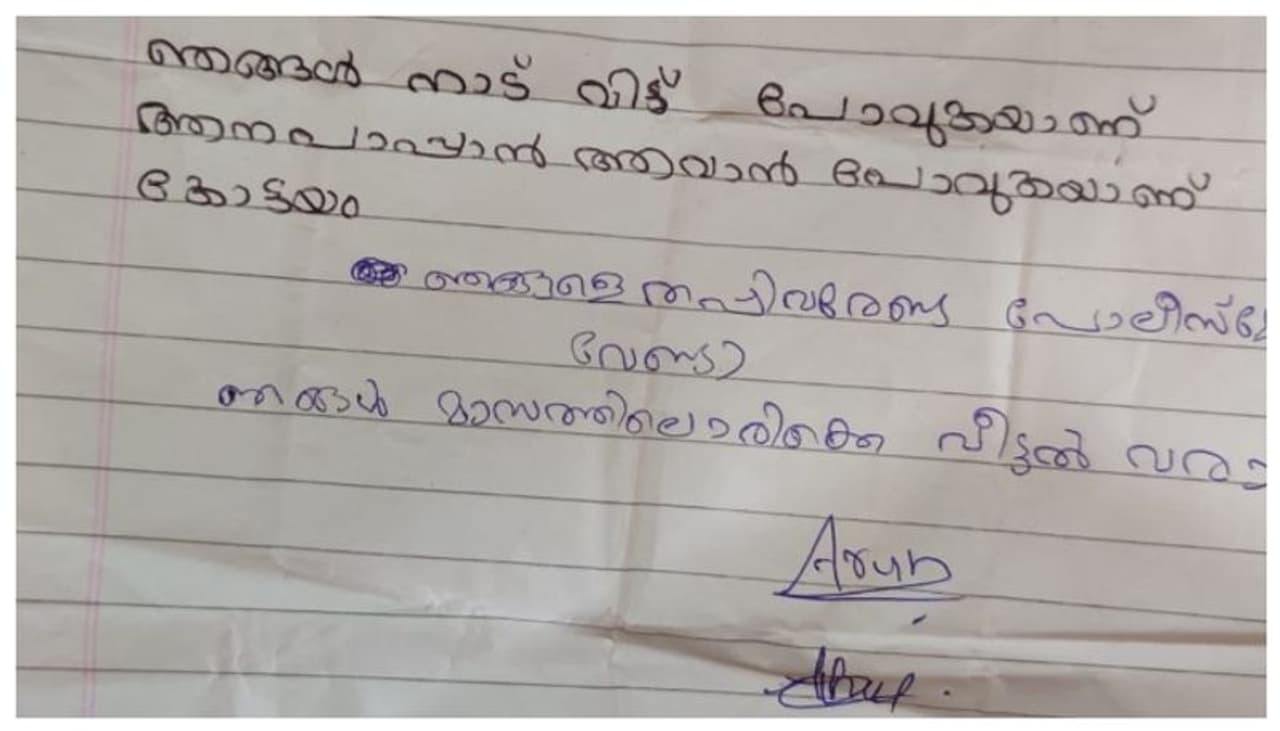 ഞങ്ങൾ നാട് വിട്ട് പോവുകയാണ്
ആനപാപ്പാൻ ആവാൻ പോവുകയാണ്
കോട്ടയം
ഞങ്ങളെ തപ്പിവരേണ്ട പോലീസ്
വേണ്ടാ
ഞങ്ങൾ മാസത്തിലൊരിക്കെ വീട്ടൽ വരാ
Arun